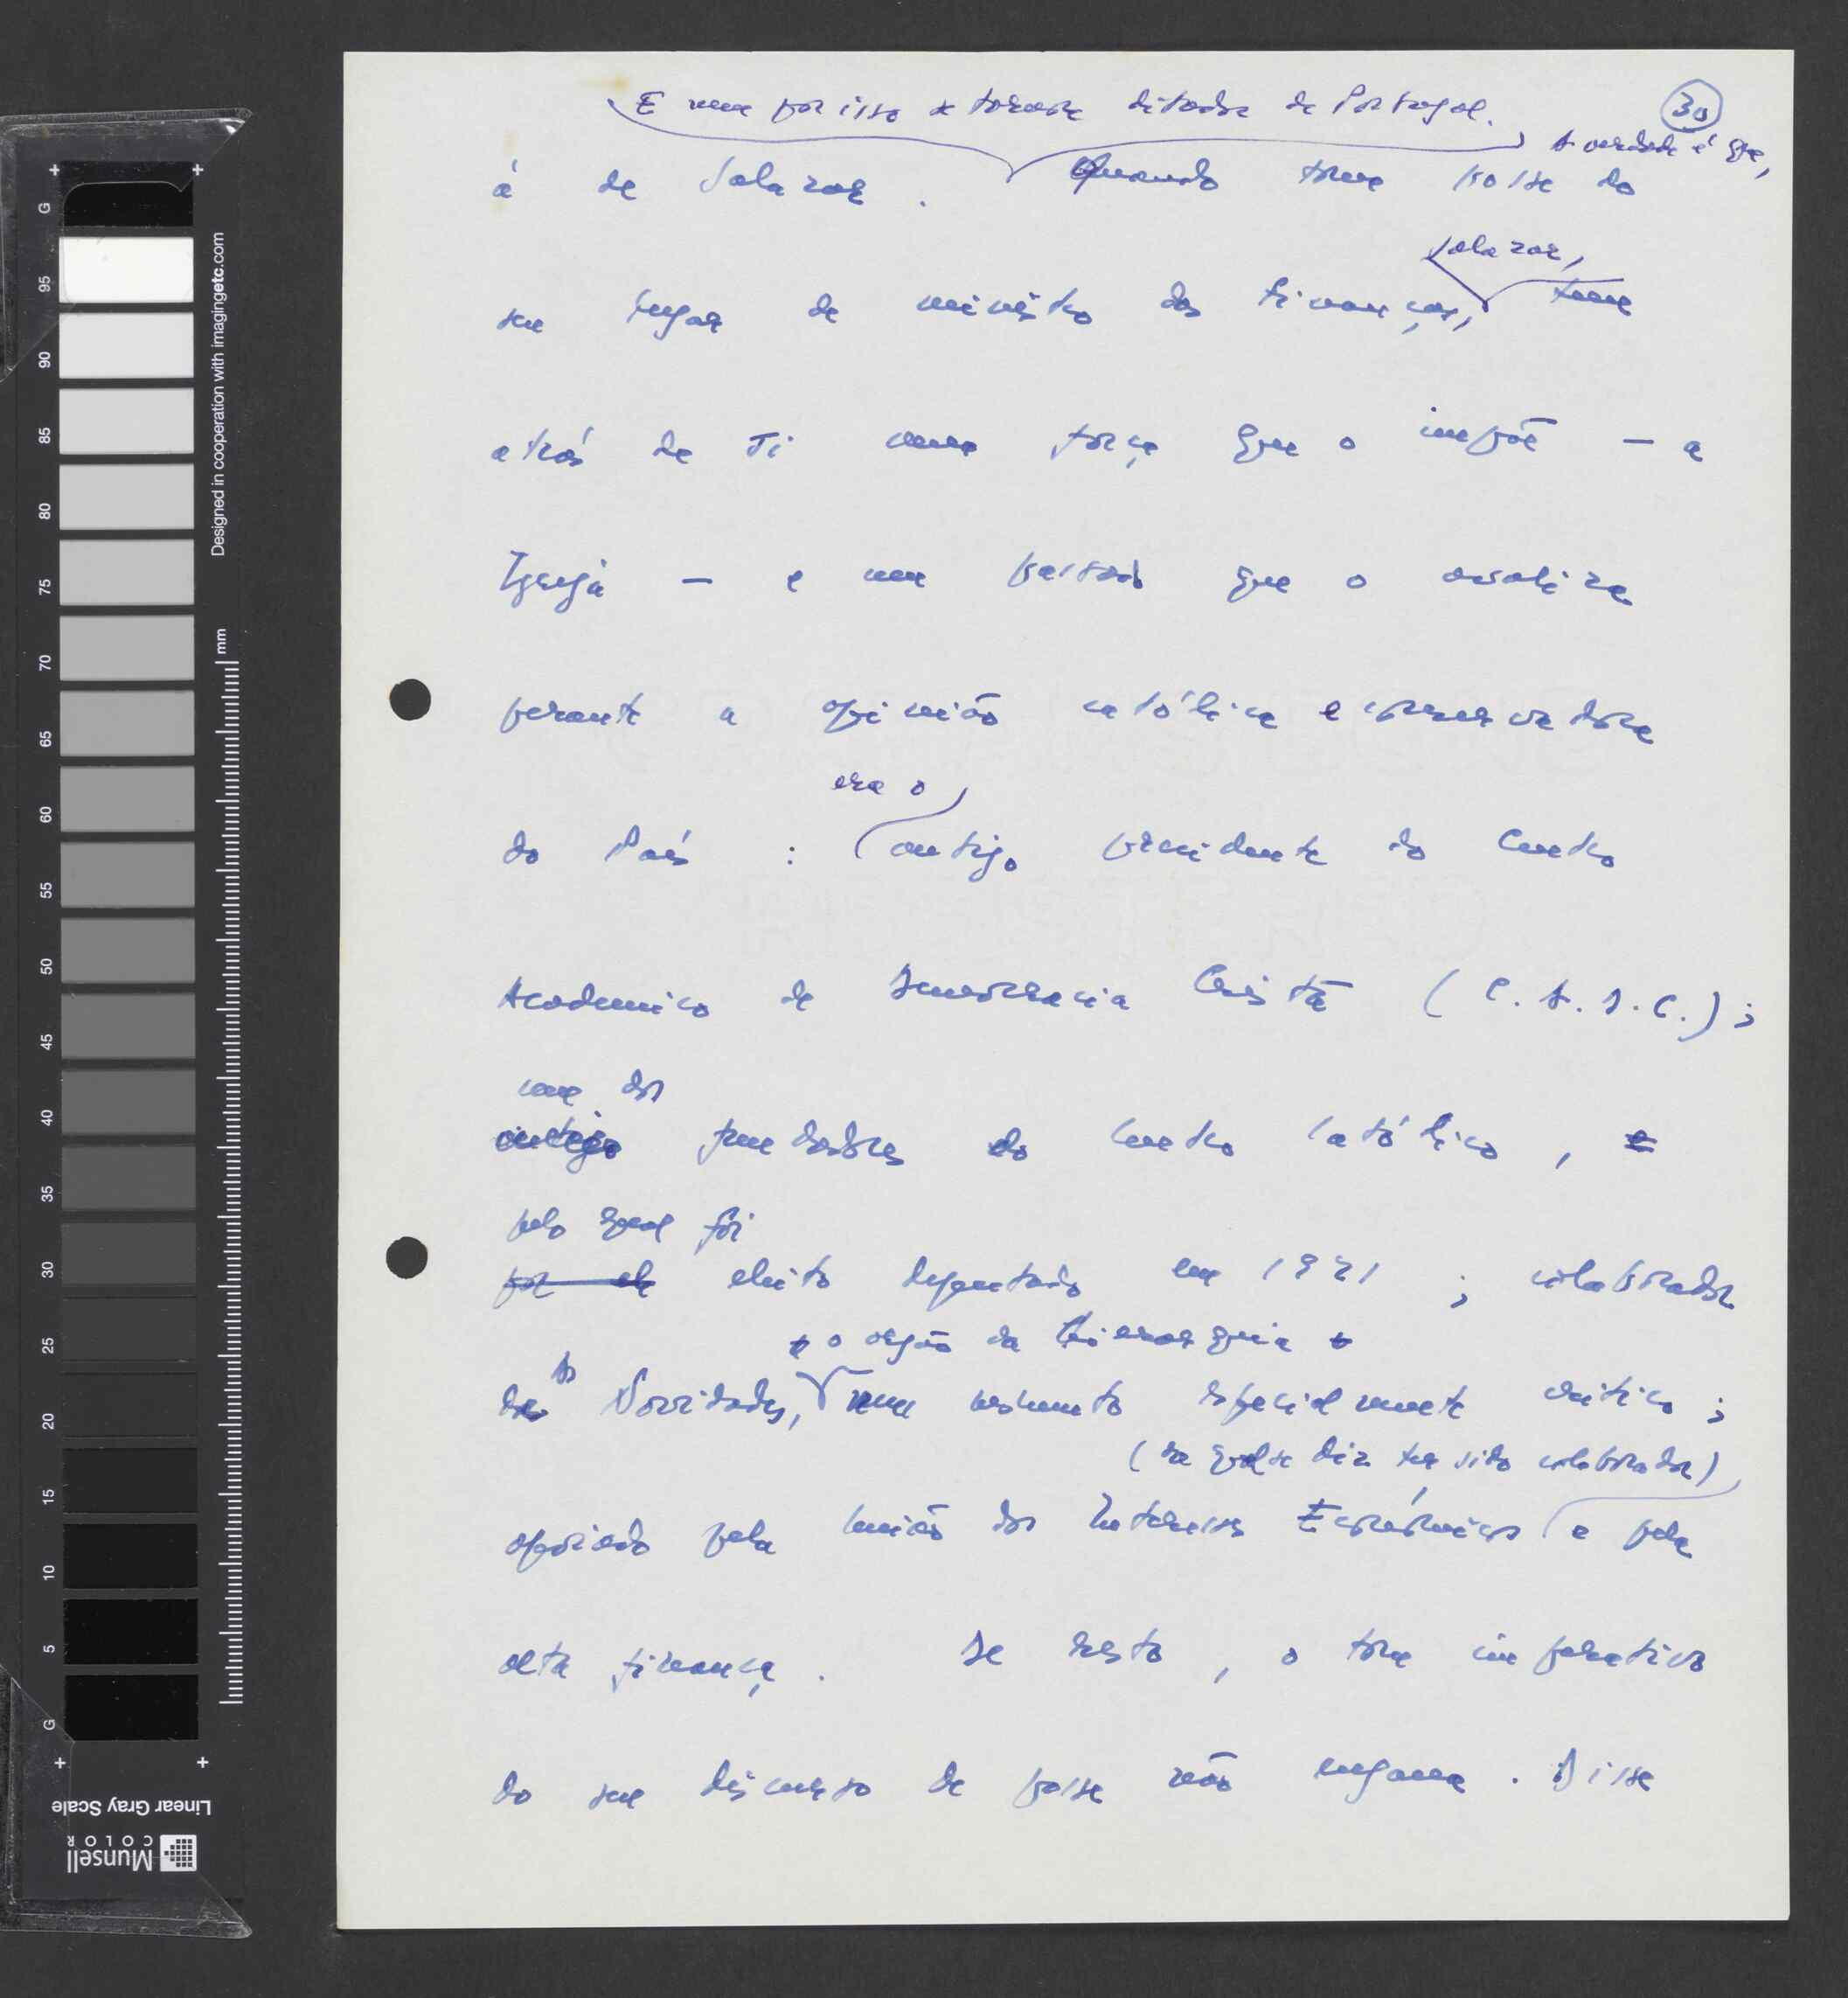 30
E nem por isso se tornou ditador de Portugal.
A verdade é que,
à de Salazar. Quando toma posse do
Salazar,
seu lugar de ministro das Finanças, tem
atrás de si uma força que o impõe – a
Igreja – e um passado que o avaliza
perante a opinião católica e conservadora
era o
do País : antigo presidente do Centro
Academico de Democracia Cristã (C.A.D.C.);
um dos
antigo fundadores do Centro Católico, e
pelo qual foi
por ele eleito deputado em 1921 ; colaborador
o orgão da Hierarquia
das Novidades, num momento especialmente crítico ;
(da qual se diz ter sido colaborador)
apoiado pela União dos Interesses Económicos e pela
alta finança. De resto, o tom imperativo
do seu discurso de posse não engana. Disse
G 95 90 85 80 75 70 65 60 55 50 45 40 35 30 25 20 15 10 5 G
Designed in cooperation with imagingetc.com
mm
Linear Gray Scale
Munsell
COLOR